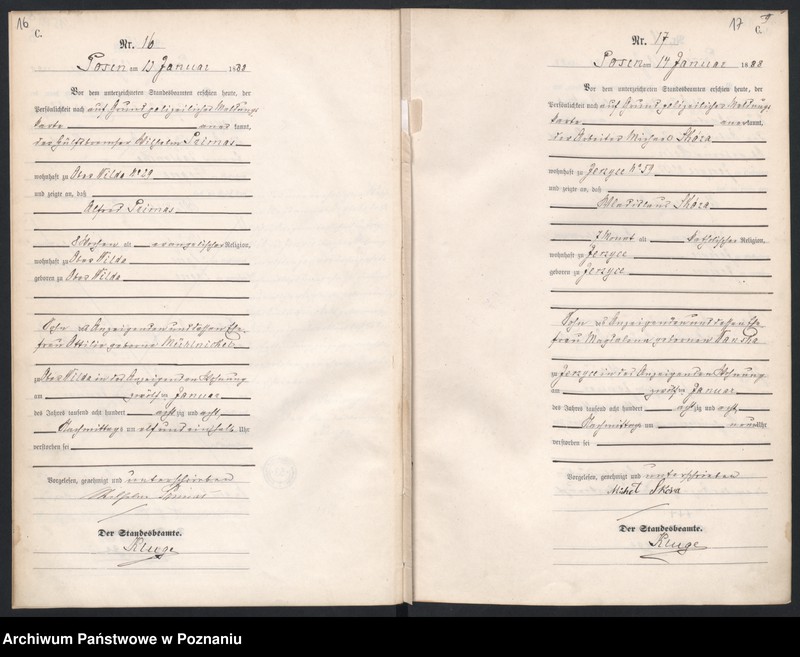 16
C.
Nr. 16
Posen am 13 Januar 1888
Vor dem unterzeichneten Standesbeamten erschien heute, der
Persönlichkeit nach auf Grund polizeilicher Meldungs
karte anerkannt,
der Hülfsbremser Wilhelm
wohnhaft zu Ober Wilda No 29
und zeigte an, daß
Alfred
8 Wochen alt evangelischer Religion,
wohnhaft zu Ober Wilda
geboren zu Ober Wilda
Sohn des Anzeigenden und dessen Ehe
frau Ottilie geborene
zu Ober Wilda in des Anzeigenden Wohnung
am zwölften Januar
des Jahres tausend acht hundert achtzig und acht
Nachmittags um elf und einhalb Uhr
verstorben sei
Vorgelesen, genehmigt und unterschrieben
Wilhelm
Der Standesbeamte.
Kluge
17
C.
Nr. 17
Posen am 14 Januar 1888
Vor dem unterzeichneten Standesbeamten erschien heute, der
Persönlichkeit nach auf Grund polizeilicher Meldungs
karte anerkannt,
der Arbeiter Michael Skóra
wohnhaft zu Jerzyce No 59
und zeigte an, daß
Wladislaus Skóra
7 Monat alt katholischer Religion,
wohnhaft zu Jerzyce
geboren zu Jerzyce
Sohn des Anzeigenden und dessen Ehe
frau Magdalena geborenen
zu Jerzyce in des Anzeigenden Wohnung
am zwölften Januar
des Jahres tausend acht hundert achtzig und acht
Nachmittags um neun Uhr
verstorben sei
Vorgelesen, genehmigt und unterschrieben
Michał Skóra
Der Standesbeamte.
Kluge
Archiwum Państwowe w Poznaniu